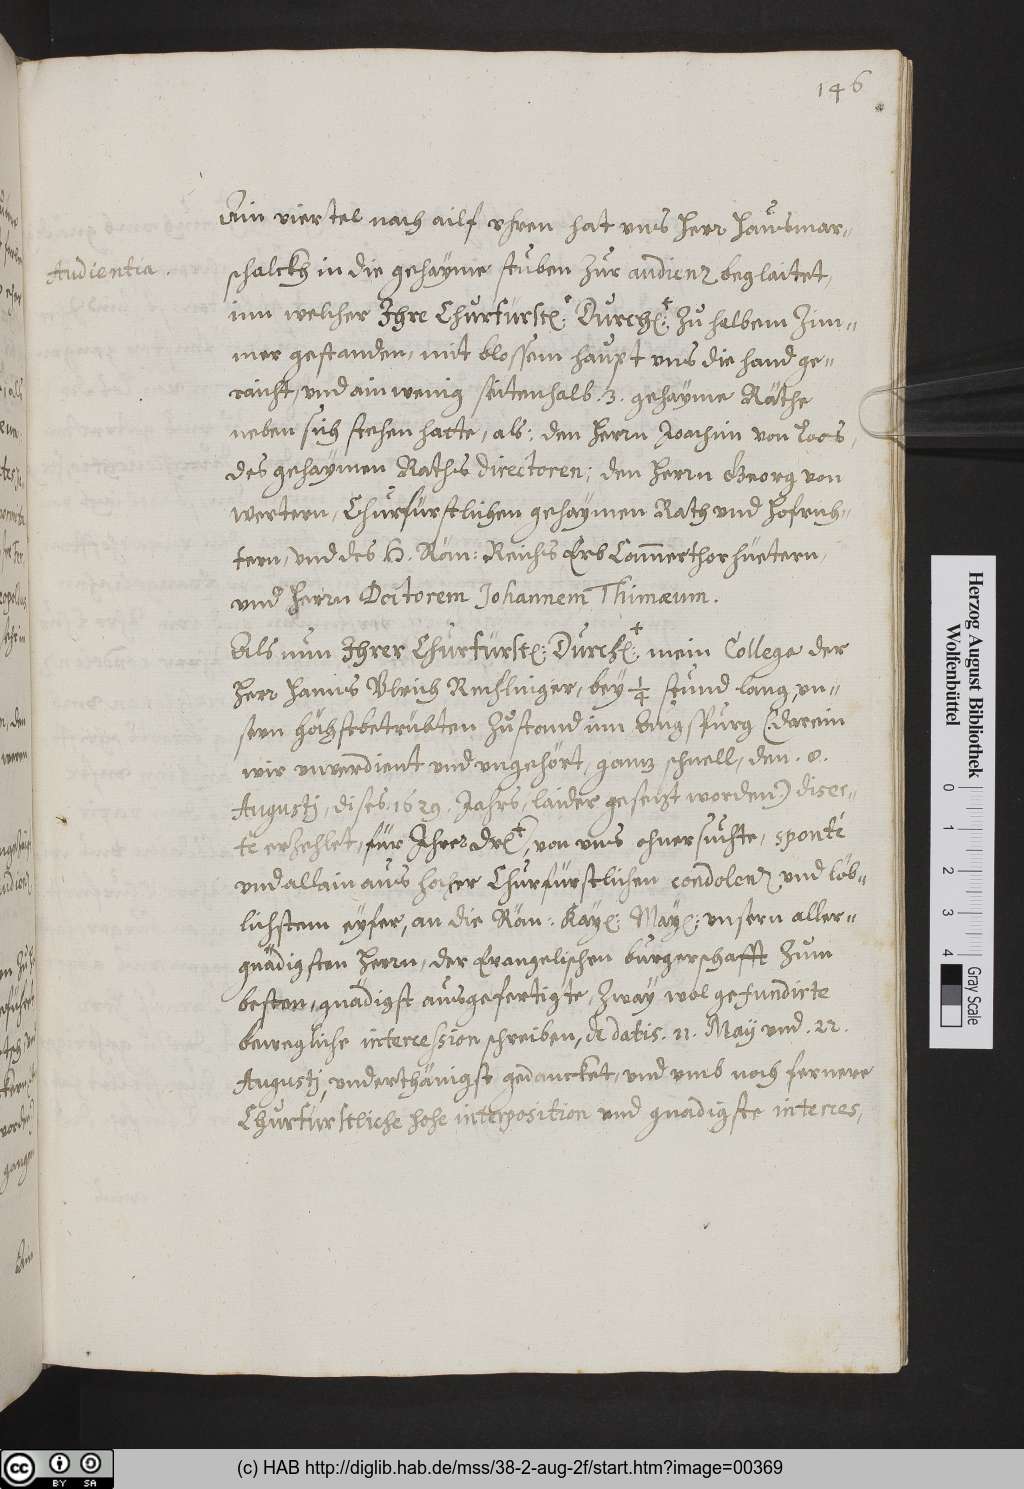 146
Audientia.
Ain viertel nach ailf vhren hat vns Herr Hausmar=
schalckh in die gehayme stuben zur audienz beglaitet,
inn welcher Ihre Churfürstl: Durchl: zu halbem Zim=
mer gestanden, mit blossem haupt vns die hand ge=
raicht, vnd ain wenig seitenhalb .3. gehayme Räthe
neben sich stehen hatte, als: den Herrn Joachim von Loos,
des gehaymen Raths Directoren; den Herrn Georg von
Wertern, Churfürstlichen gehaymen Rath vnd Hofrich=
tern, vnd des H. Röm: Reichs Erb Cammerthorhüetern,
vnd Herrn Doctorem Johannem Thimæum.
Als nun Ihrer Churfürstl: Durchl: mein College der
Herr Hanns Vlrich Rechlinger, bey 1/4 stund lang, vn=
sern höchstbetrübten Zustand inn Augspurg (:darein
wir vnverdient vnd vngehört, ganz schnell, den .8.
Augustj, dises 1629. Jahrs, laider gesetzt worden:) discre=
te erzehlet, für Ihrer Drl, von vns ohnersuchte, sponte
vnd allain aus hocher Churfürstlichen condolenz vnd löb=
lichstem eyfer, an die Röm: Kayl: Mayl: vnsern aller=
gnädigsten Herrn, der Evangelischen burgerschafft zum
besten, gnädigst ausgefertigte, zway wol gefundirte
bewegliche intercession schreiben, de datis .11. May vnd .22.
Augustj, vnderthänigst gedancket, vnd vmb noch fernere
Churfürstliche hohe interposition vnd gnädigste interces,
Herzog August Bibliothek
Wolfenbüttel
0 1 2 3 4
Gray Scale
cc BY SA
(c) HAB http://diglib.hab.de/mss/38-2-aug-2f/start.htm?image=00369